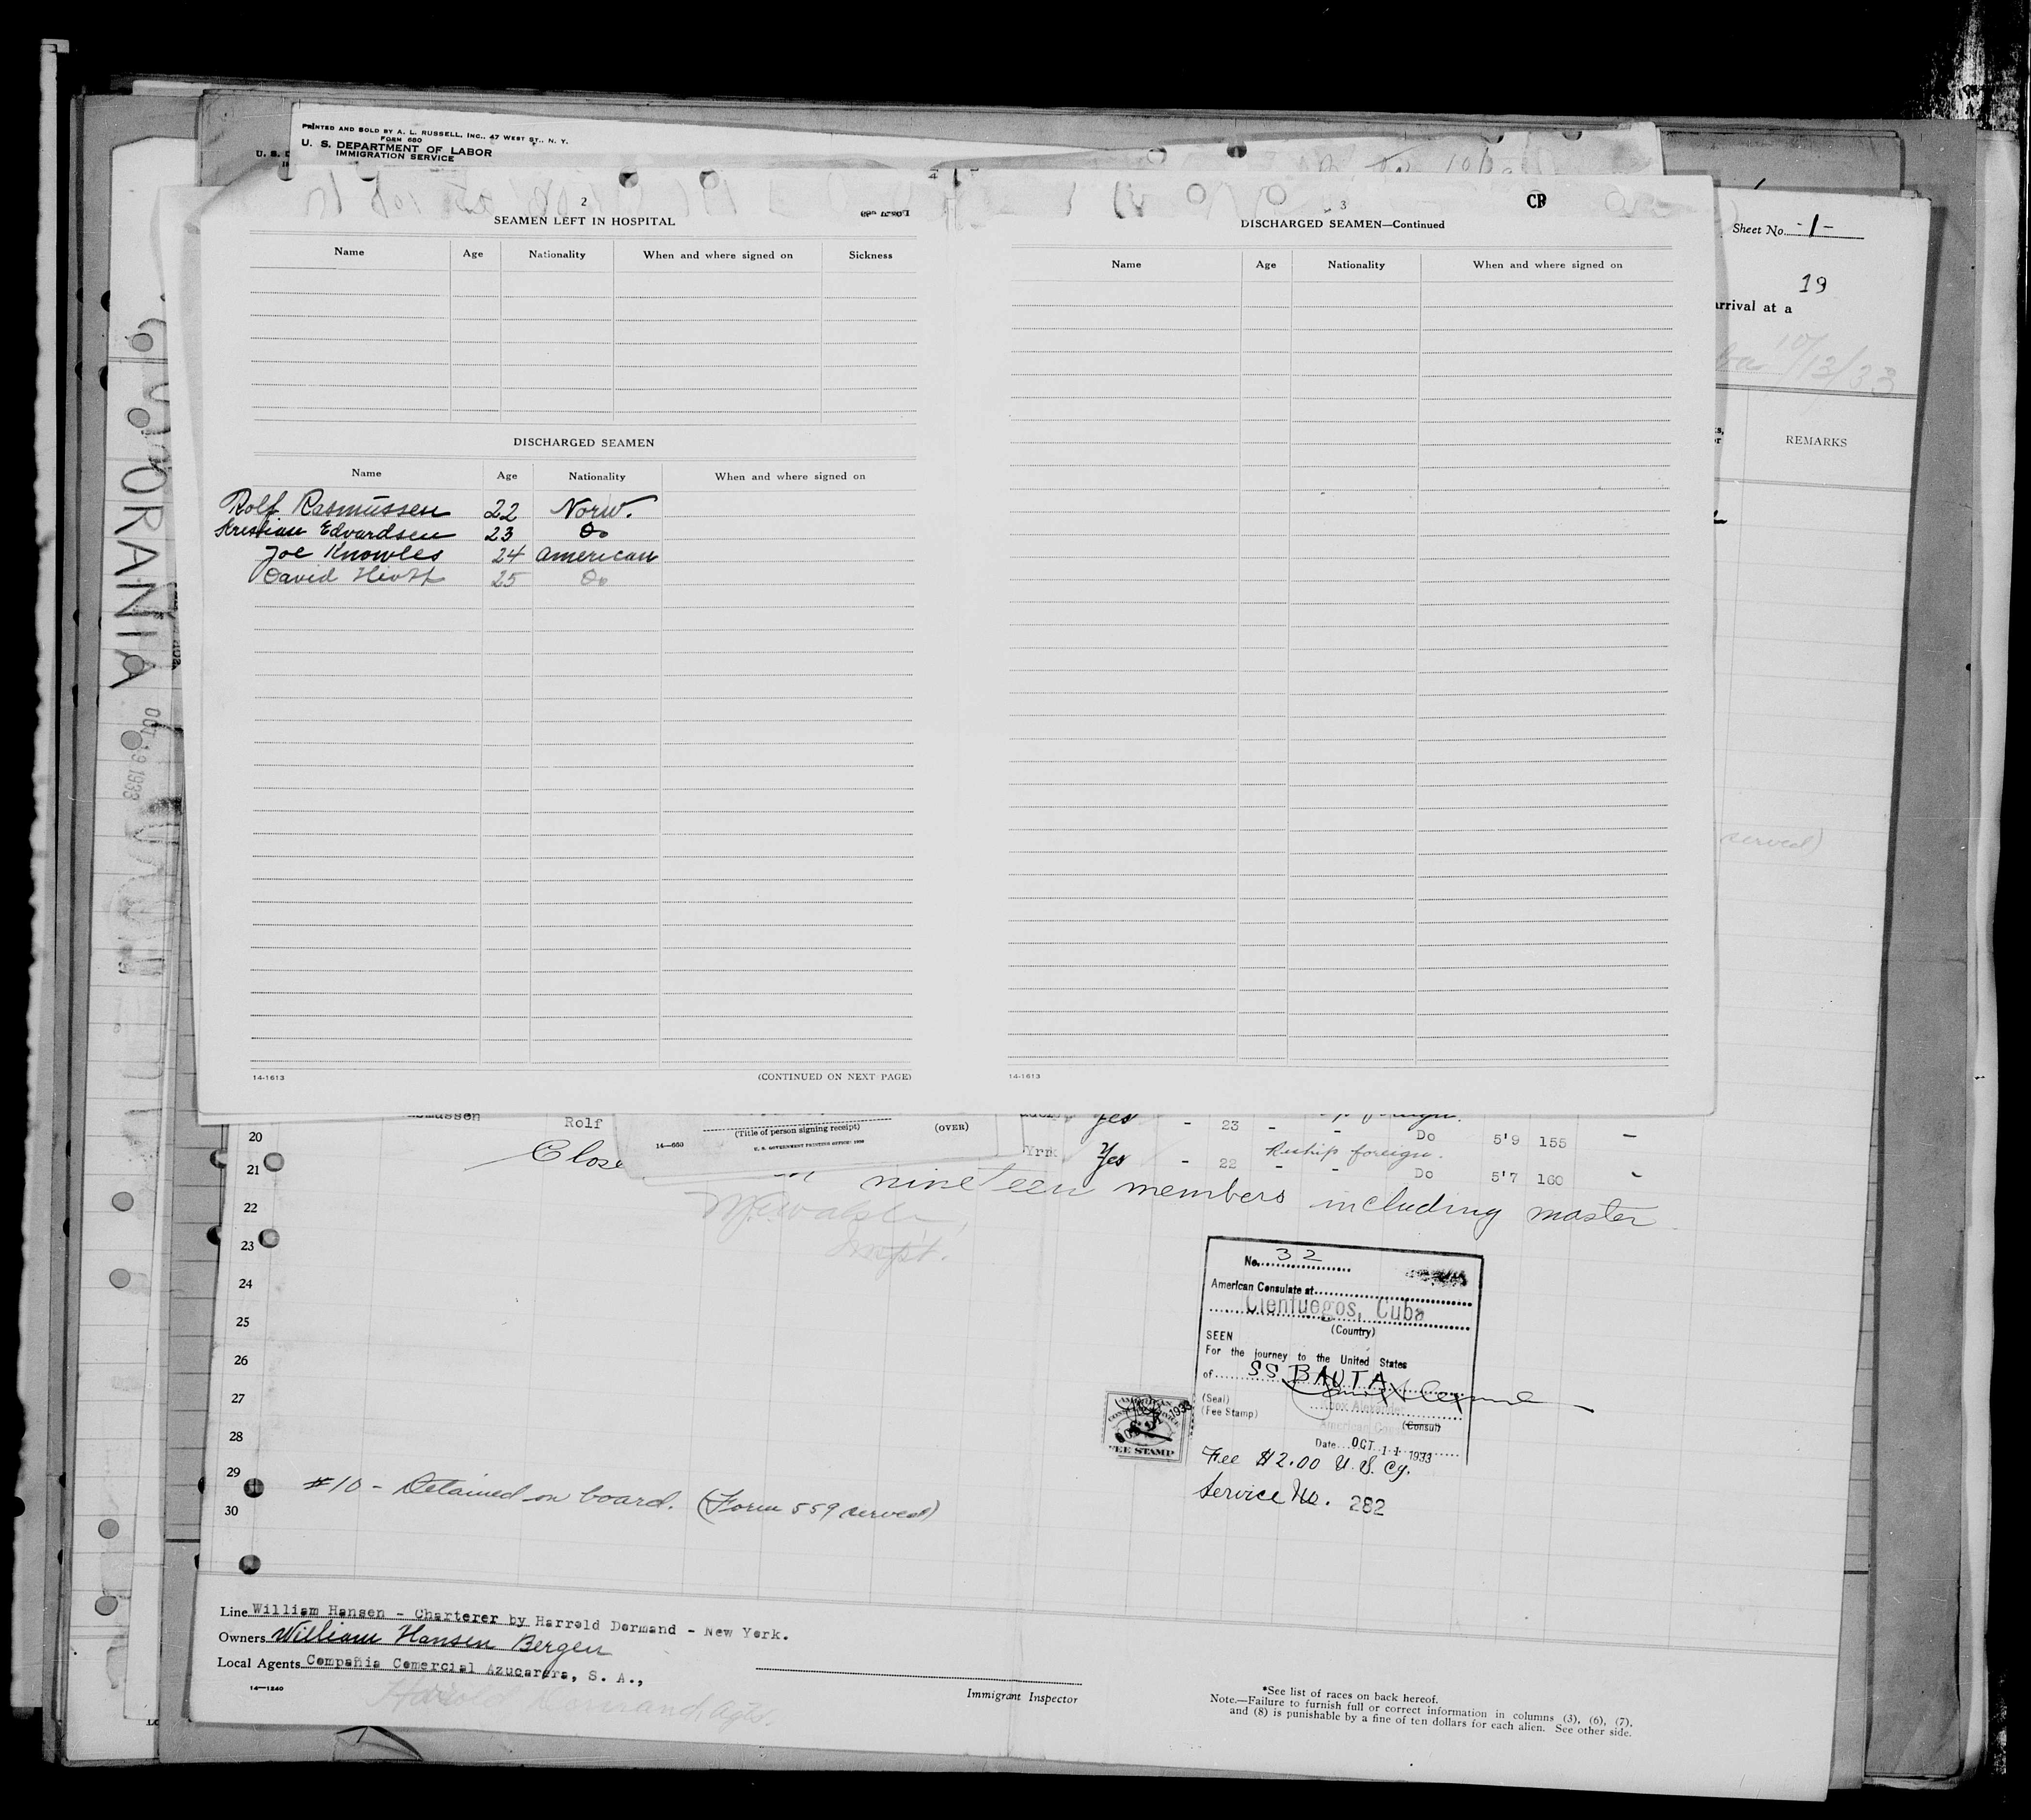 PRINTED AND SOLD BY A. L. RUSSELL, INC., 47 WEST ST., N. Y.
FORM 680
U. S. DEPARTMENT OF LABOR
IMMIGRATION SERVICE
U. S. D
2
SEAMEN LEFT IN HOSPITAL
Name Age Nationality When and where signed on Sickness
DISCHARGED SEAMEN
Name Age Nationality When and where signed on
Rolf Rasmussen 22 Norw.
Kristian Edvardsen 23 Do
Joe Knowles 24 American
David 25 Do
14-1613 (CONTINUED ON NEXT PAGE)
3
CR
DISCHARGED SEAMEN—Continued
Name Age Nationality When and where signed on
14-1613
Sheet No. -1-
19
arrival at a
10/13/33
REMARKS
served)
ORANIA
OCT 19 1933
Rolf
(Title of person signing receipt) (OVER)
14—660 U. S. GOVERNMENT PRINTING OFFICE
Yes - 23 - - Do 5'9 155 -
Yes - 22 Reship foreign. - - Do 5'7 160 -
Close nineteen members including master
Inspt.
20
21
22
23
24
25
26
27
28
29
30
#10 - Detained on board. (Form 559 served)
No. 32
American Consulate at
Cienfuegos, Cuba
(Country)
SEEN
For the journey to the United States
of SS BAUTA
(Seal)
(Fee Stamp)
Knox Alexander
American Consul
(Consul)
Date OCT 11 1933
FEE STAMP
Fee $2.00 U.S. Cy.
Service No. 282
Line William Hansen - Charterer by Harrold Dormand - New York.
Owners William Hansen Bergen
Local Agents Compañia Comercial Azucarera, S. A.,
14—1240
Harold Dormand, Agts.
Immigrant Inspector
*See list of races on back hereof.
Note.—Failure to furnish full or correct information in columns (3), (6), (7),
and (8) is punishable by a fine of ten dollars for each alien. See other side.